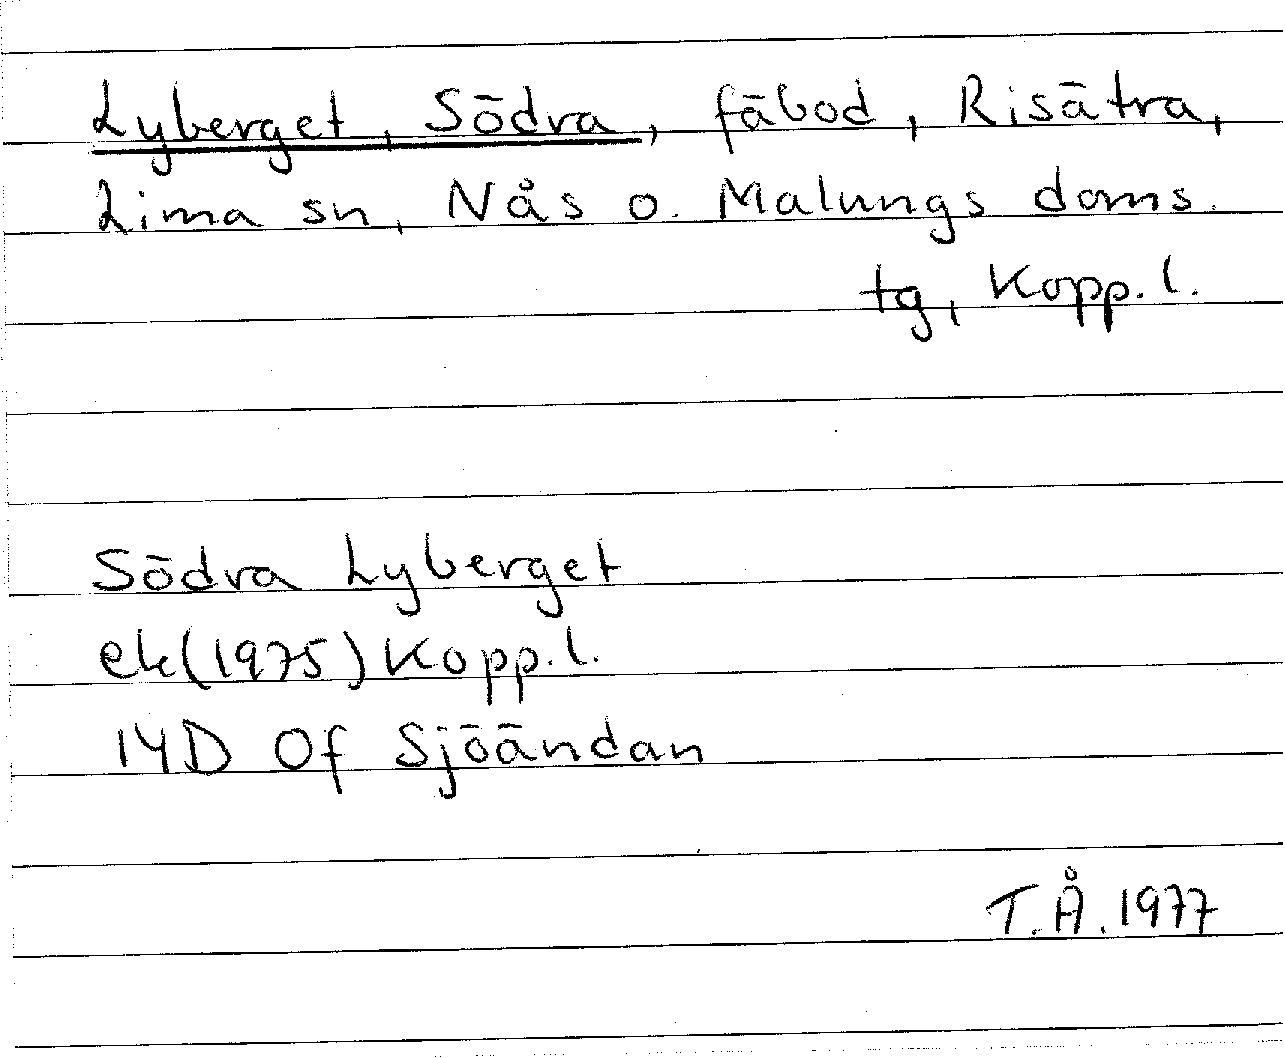 Lyberget, Södra, fäbod, Risätra,
Lima sn, Nås o. Malungs doms.
tg, Kopp. l.
Södra Lyberget
ek (1975) Kopp. l.
14D 0f Sjöändan
T. Å. 1977